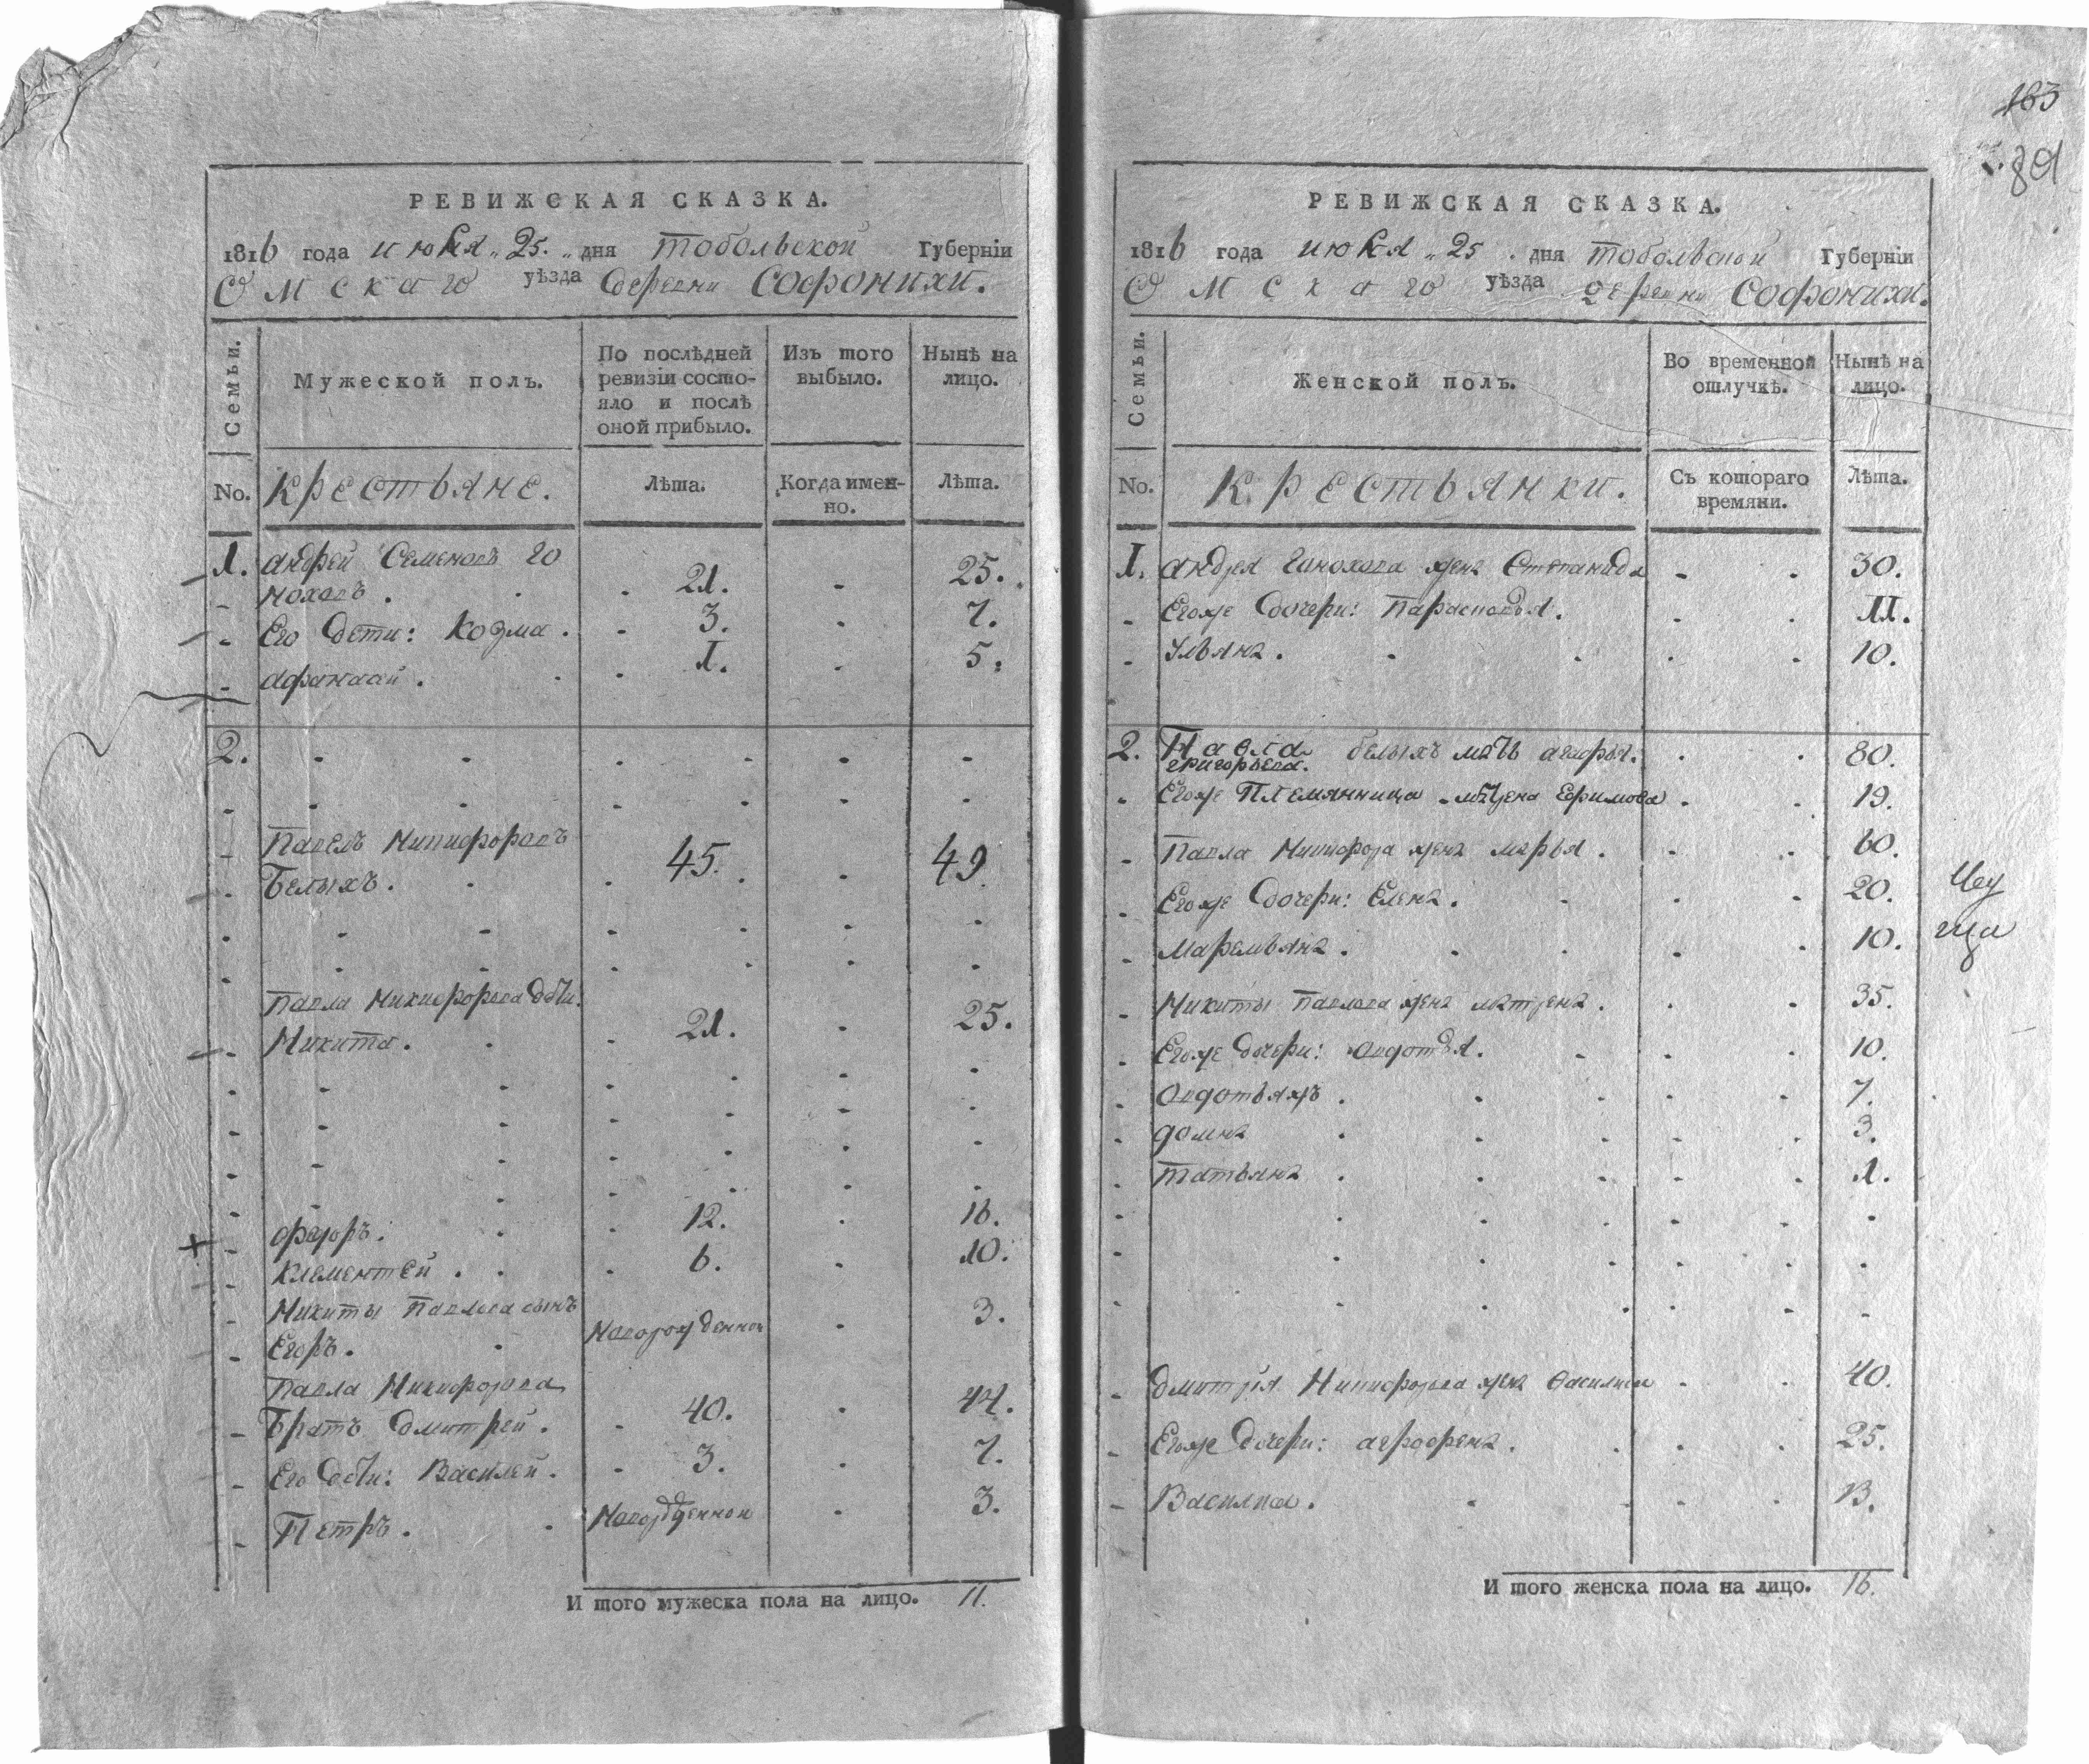 РЕВИЖСКАЯ СКАЗКА.
1816 года июня „ 25. „ дня Тобольской Губернїи
Омскаго уѣзда деревни Софонихи.
Семьи.
Мужеской полъ.
По послѣдней ревизїи состо-
яло и послѣ
оной прибыло.
Изъ того
выбыло.
Нынѣ на
лицо.
No.
Крестьяне.
Лѣта.
Когда имен-
но.
Лѣта.
1. андрей Семеновъ Го
ноховъ . 21. - 25.
Его дети: Козма . 3. - 7.
афанасий . 1. - 5.
2.
Павелъ Никифоровъ
Белыхъ . 45. - 49.
Павла Никифорова дѣти.
Никита . 21. - 25.
федоръ . 12. - 16.
Клементей . 6. - 10.
Никиты Павлова сынъ
Егоръ . Новорожденной - 3.
Павла Никифорова
Братъ дмитрей . 40. - 44.
Его дѣти: Василей . 3. - 7.
Петръ . Новорожденной - 3.
И того мужеска пола на лицо. 11.
163
81
РЕВИЖСКАЯ СКАЗКА.
1816 года июня „ 25 . дня Тобольской Губернїи
Омскаго уѣзда деревни Софонихи.
Семьи.
Женской полъ.
Во временной
отлучкѣ.
Нынѣ на
лицо.
No.
Крестьянки.
Съ котораго
времяни.
Лѣта.
1. андрея Гонохова жена Степанида - 30.
Егоже дочери: Парасковья . 11.
Ульяна . 10.
2. Павла Белыхъ мать агафья 80.
григорьева.
Егоже Племянница Ефимова . 19.
Павла Никифорова жена марья . 60.
Егоже дочери: Елена . 20.
Маремьяна . 10.
Никиты Павлова жена матрена . 35.
Егоже дочери: авдотья . 10.
авдотьяжъ . 7.
домна . 3.
татьяна . 1.
дмитрия Никифорова жена василиса 40.
Егоже дочери: аграфена . 25.
Василиса . 13.
И того женска пола на лицо. 16.